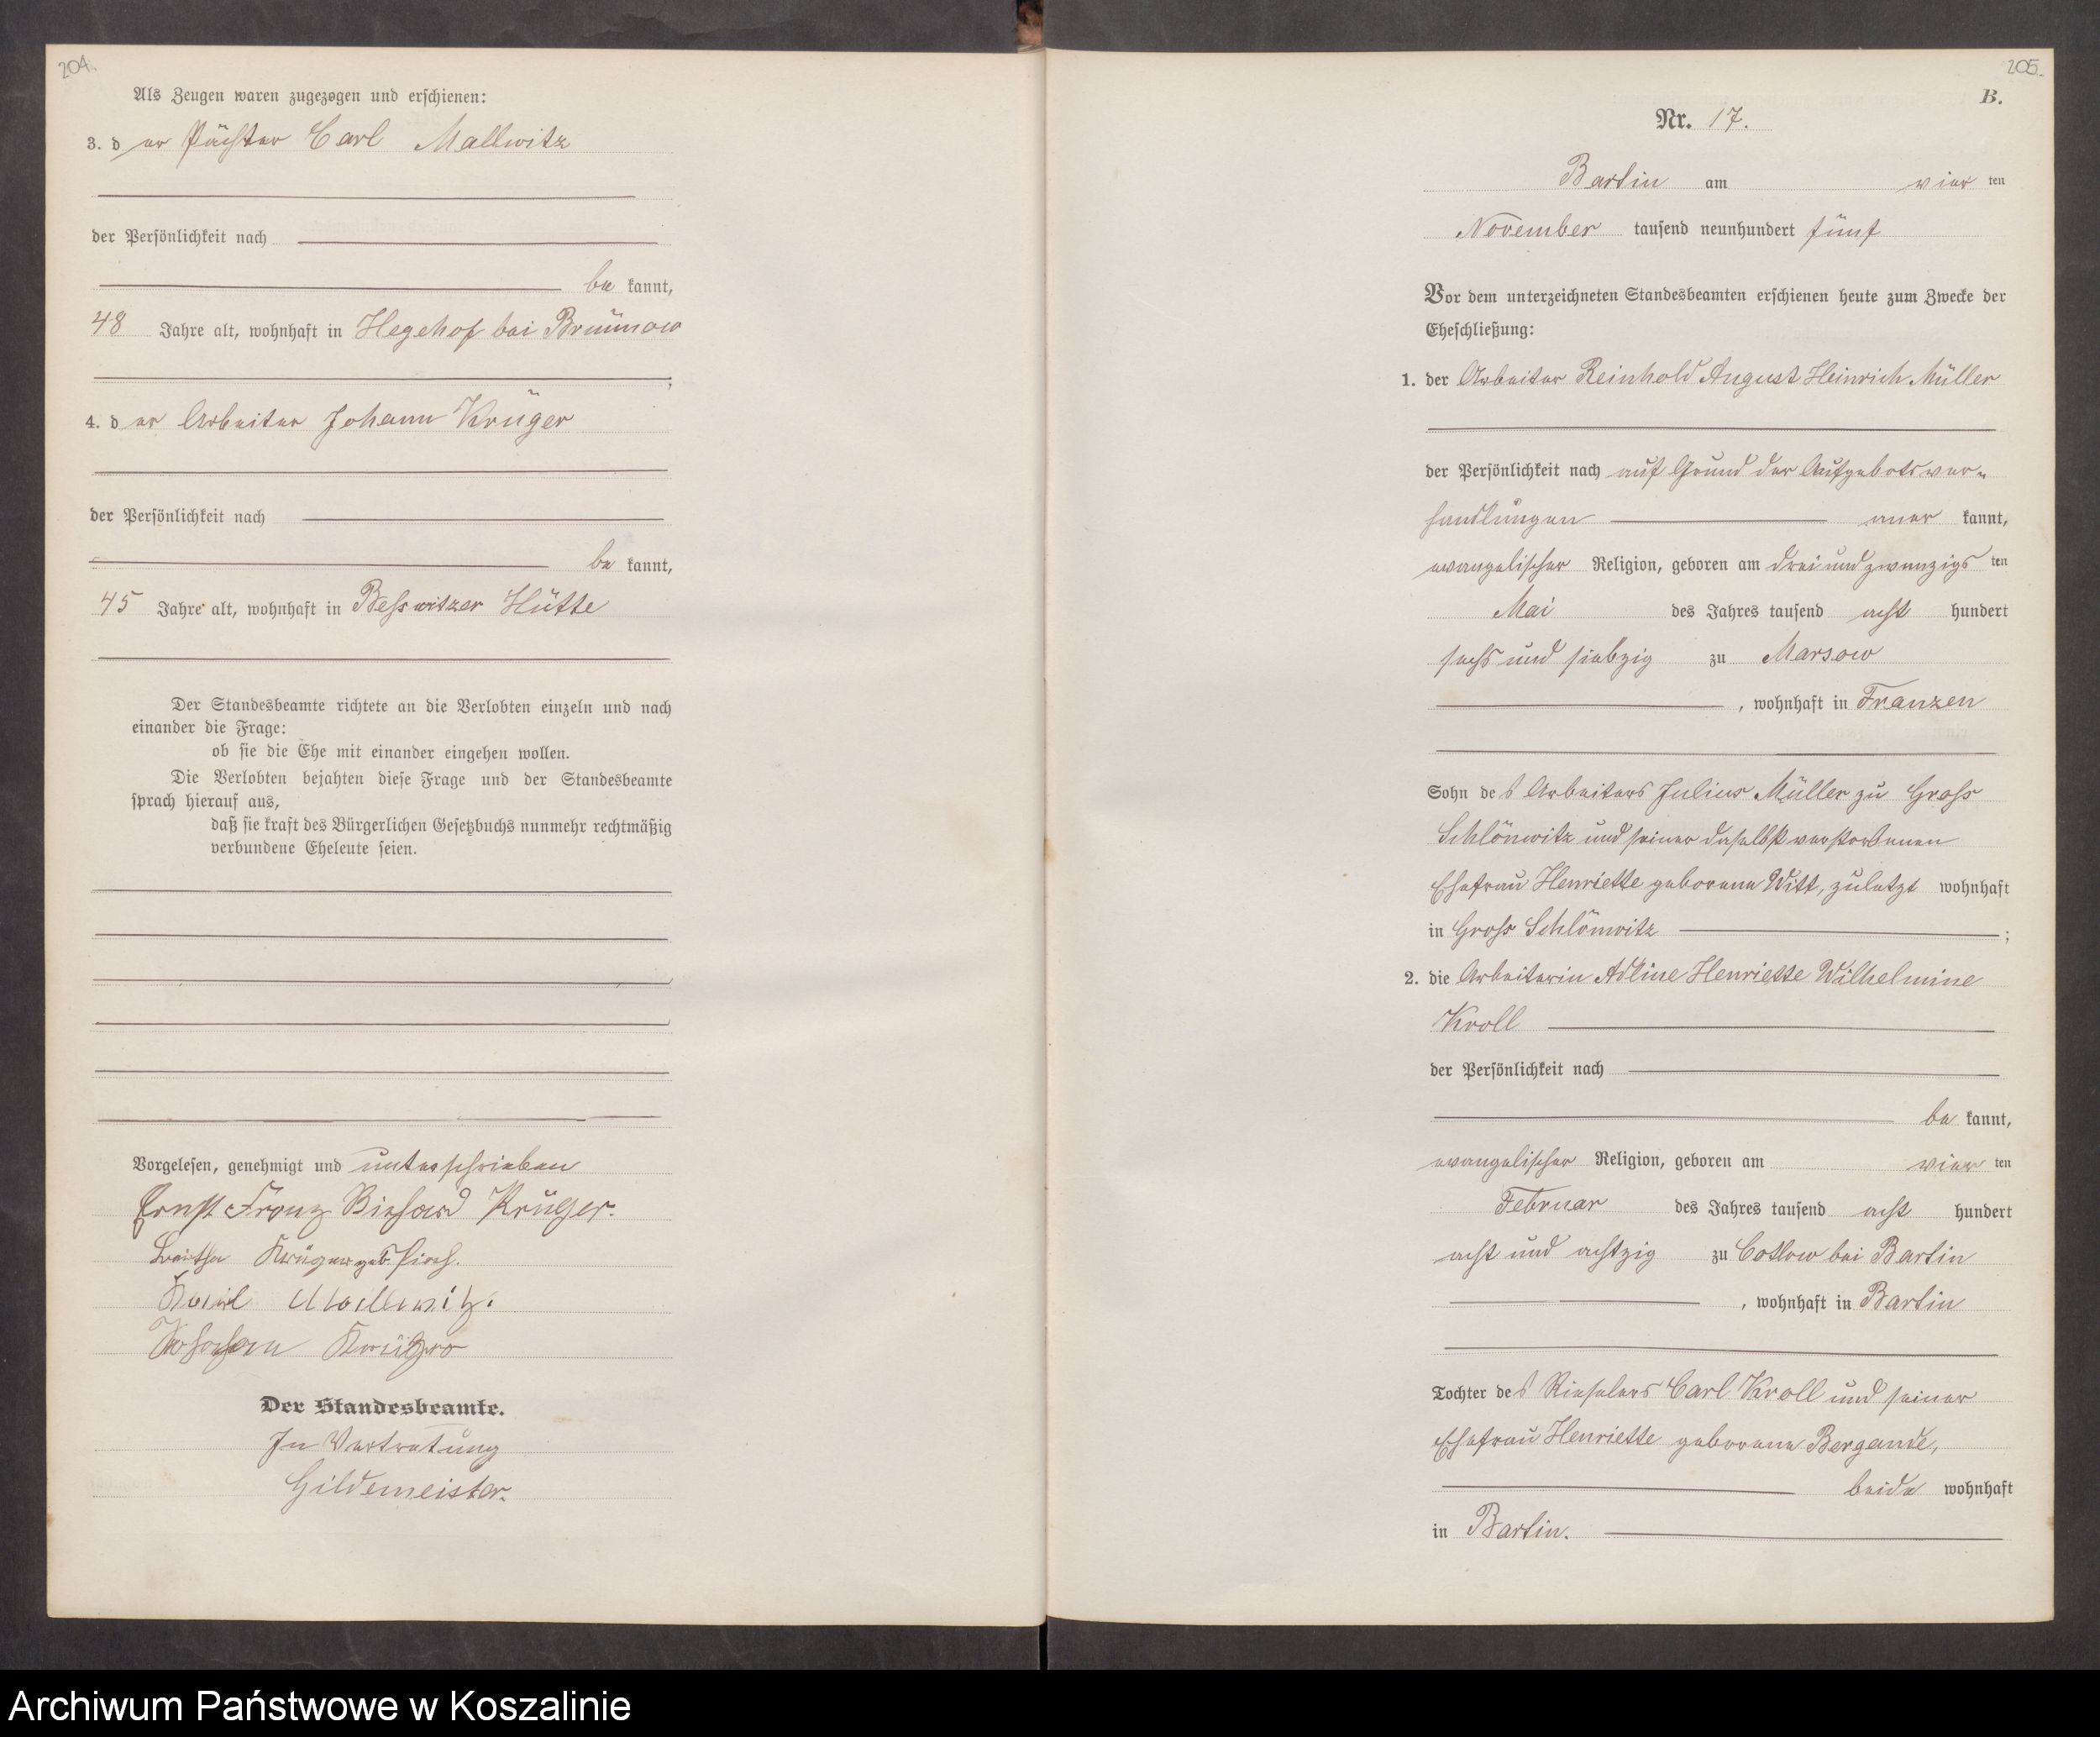 204.
Als Zeugen waren zugezogen und erschienen:
3. der Pächter Carl Mallwitz
der Persönlichkeit nach
be kannt,
48 Jahre alt, wohnhaft in Hegehof bei Brünnow
;
4. der Arbeiter Johann Krüger
der Persönlichkeit nach
be kannt,
45 Jahre alt, wohnhaft in Besswitzer Hütte
Der Standesbeamte richtete an die Verlobten einzeln und nach
einander die Frage:
ob sie die Ehe mit einander eingehen wollen.
Die Verlobten bejahten diese Frage und der Standesbeamte
sprach hierauf aus,
daß sie kraft des Bürgerlichen Gesetzbuchs nunmehr rechtmäßig
verbundene Eheleute seien.
Vorgelesen, genehmigt und unterschrieben
Ernst Franz Richard Krüger.
Krüger geb.
Karl Mallwitz.
Krüger
Der Standesbeamte.
In Vertretung
Gildemeister.
205.
B.
Nr. 17.
Bartin am vier ten
November tausend neunhundert fünf
Vor dem unterzeichneten Standesbeamten erschienen heute zum Zwecke der
Eheschließung:
1. der Arbeiter Reinhold August Heinrich Müller
der Persönlichkeit nach auf Grund der Aufgebotsver-
handlungen aner kannt,
evangelischer Religion, geboren am dreiundzwanzigs ten
Mai des Jahres tausend acht hundert
sechs und siebzig zu Marsow
, wohnhaft in Franzen
Sohn des Arbeiters Julius Müller zu Gross
Schlönwitz und seiner daselbst verstorbenen
Ehefrau Henriette geborene Witt, zuletzt wohnhaft
in Gross Schlönwitz ;
2. die Arbeiterin Adline Henriette Wilhelmine
Kroll
der Persönlichkeit nach
be kannt,
evangelischer Religion, geboren am vier ten
Februar des Jahres tausend acht hundert
acht und achtzig zu Cotlow bei Bartin
, wohnhaft in Bartin
Tochter des Rieselers Carl Kroll und seiner
Ehefrau Henriette geborene Bergande,
beide wohnhaft
in Bartin.
Archiwum Państwowe w Koszalinie